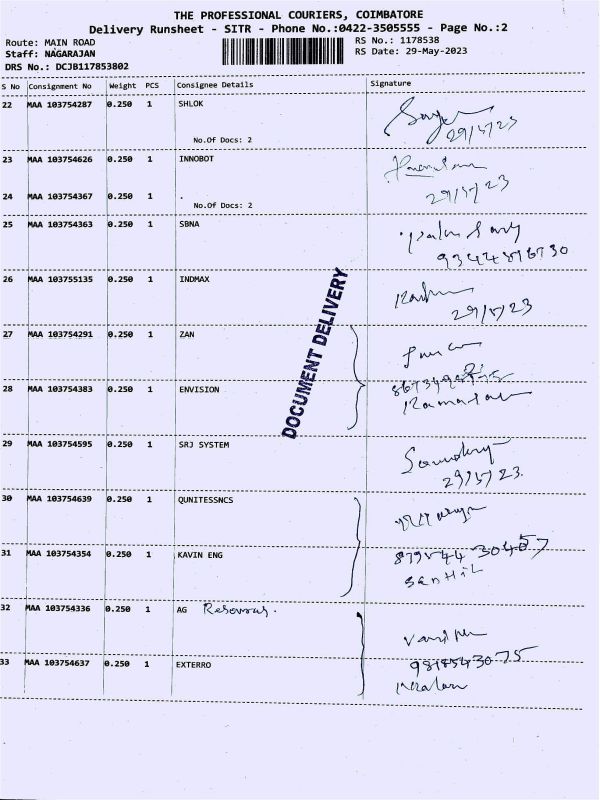 THE PROFESSIONAL COURIERS, COIMBATORE
Delivery Runsheet - SITR - Phone No.:0422-3505555 - Page No.:2
Route: MAIN ROAD
RS No.: 1178538
Staff: NAGARAJAN
RS Date: 29-May-2023
DRS No.: DCJB117853802
S No Consignment No Weight PCS Consignee Details Signature
22 MAA 103754287 0.250 1 SHLOK
29/5/23
No.Of Docs: 2
23 MAA 103754626 0.250 1 INNOBOT
29/5/23
24 MAA 103754367 0.250 1 .
No.Of Docs: 2
25 MAA 103754363 0.250 1 SBNA
26 MAA 103755135 0.250 1 INDMAX
29/5/23
DOCUMENT DELIVERY
27 MAA 103754291 0.250 1 ZAN
28 MAA 103754383 0.250 1 ENVISION
29 MAA 103754595 0.250 1 SRJ SYSTEM
29/5/23.
30 MAA 103754639 0.250 1 QUNITESSNCS
31 MAA 103754354 0.250 1 KAVIN ENG
SENHIL
32 MAA 103754336 0.250 1 AG
33 MAA 103754637 0.250 1 EXTERRO